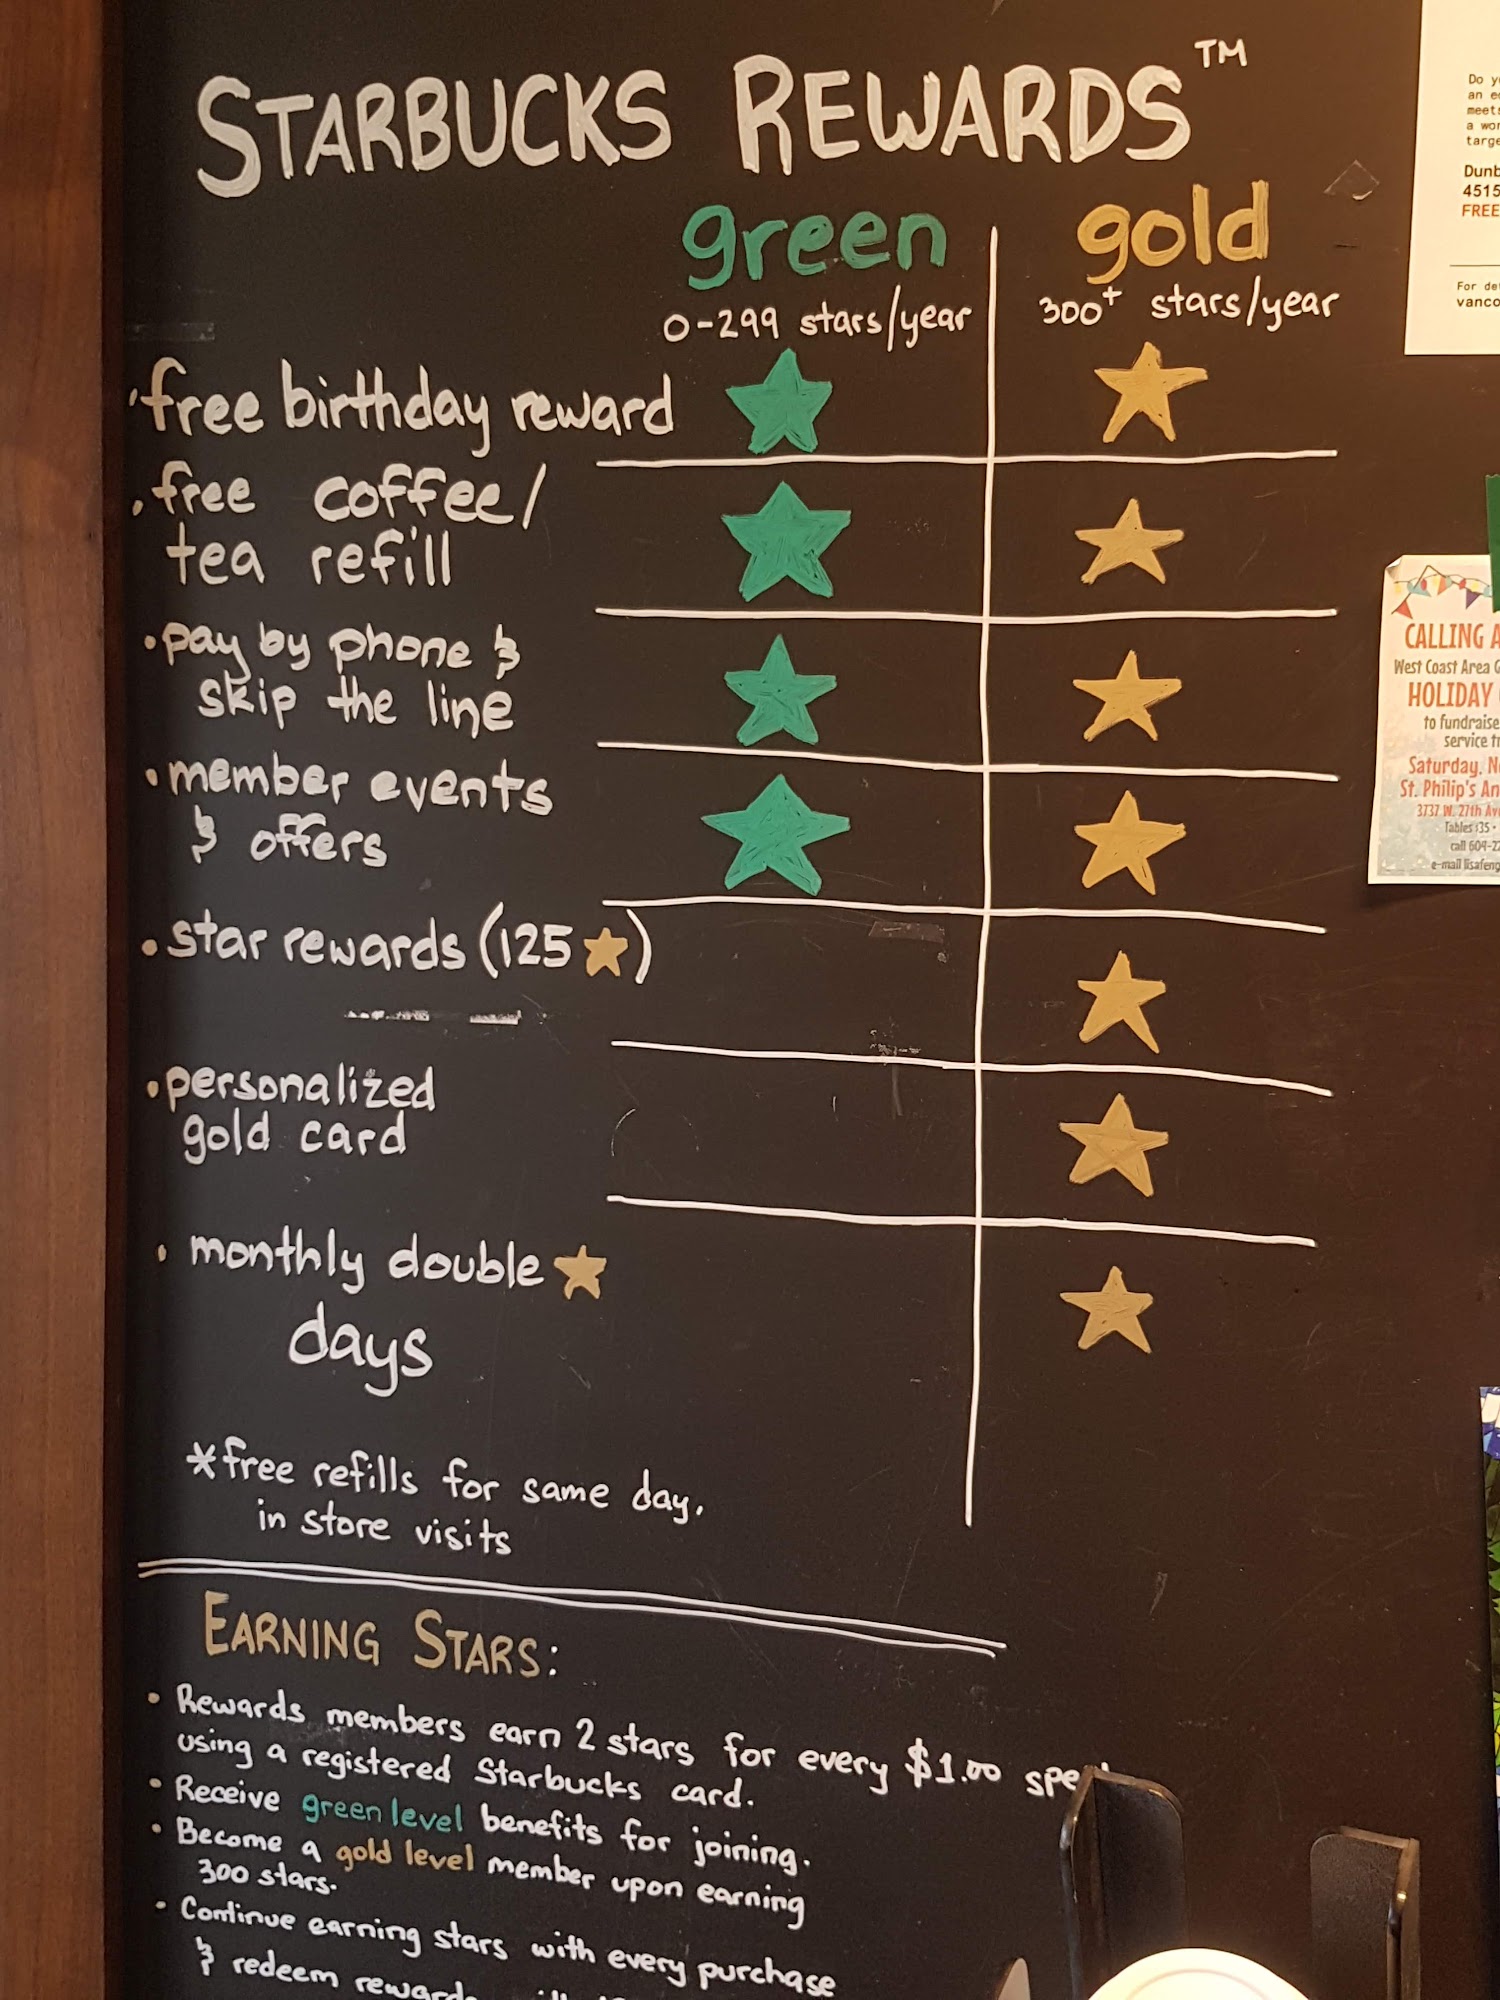 STARBUCKS REWARDS™
green
gold
0-299 stars/year
300+ stars/year
• free birthday reward
• free coffee/
tea refill
• pay by phone &
skip the line
• member events
& offers
• star rewards (125 ★)
• personalized
gold card
• monthly double ★
days
*free refills for same day,
in store visits
EARNING STARS:
• Rewards members earn 2 stars for every $1.00
using a registered Starbucks card.
• Receive green level benefits for joining.
• Become a gold level member upon earning
300 stars.
• Continue earning stars with every purchase
& redeem
Do
an
meets
a
4515
FREE
For
CALLING
West Coast Area
HOLIDAY
to fundraise
service
Saturday,
St. Philip's
3737 W. 27th
Tables
call
e-mail